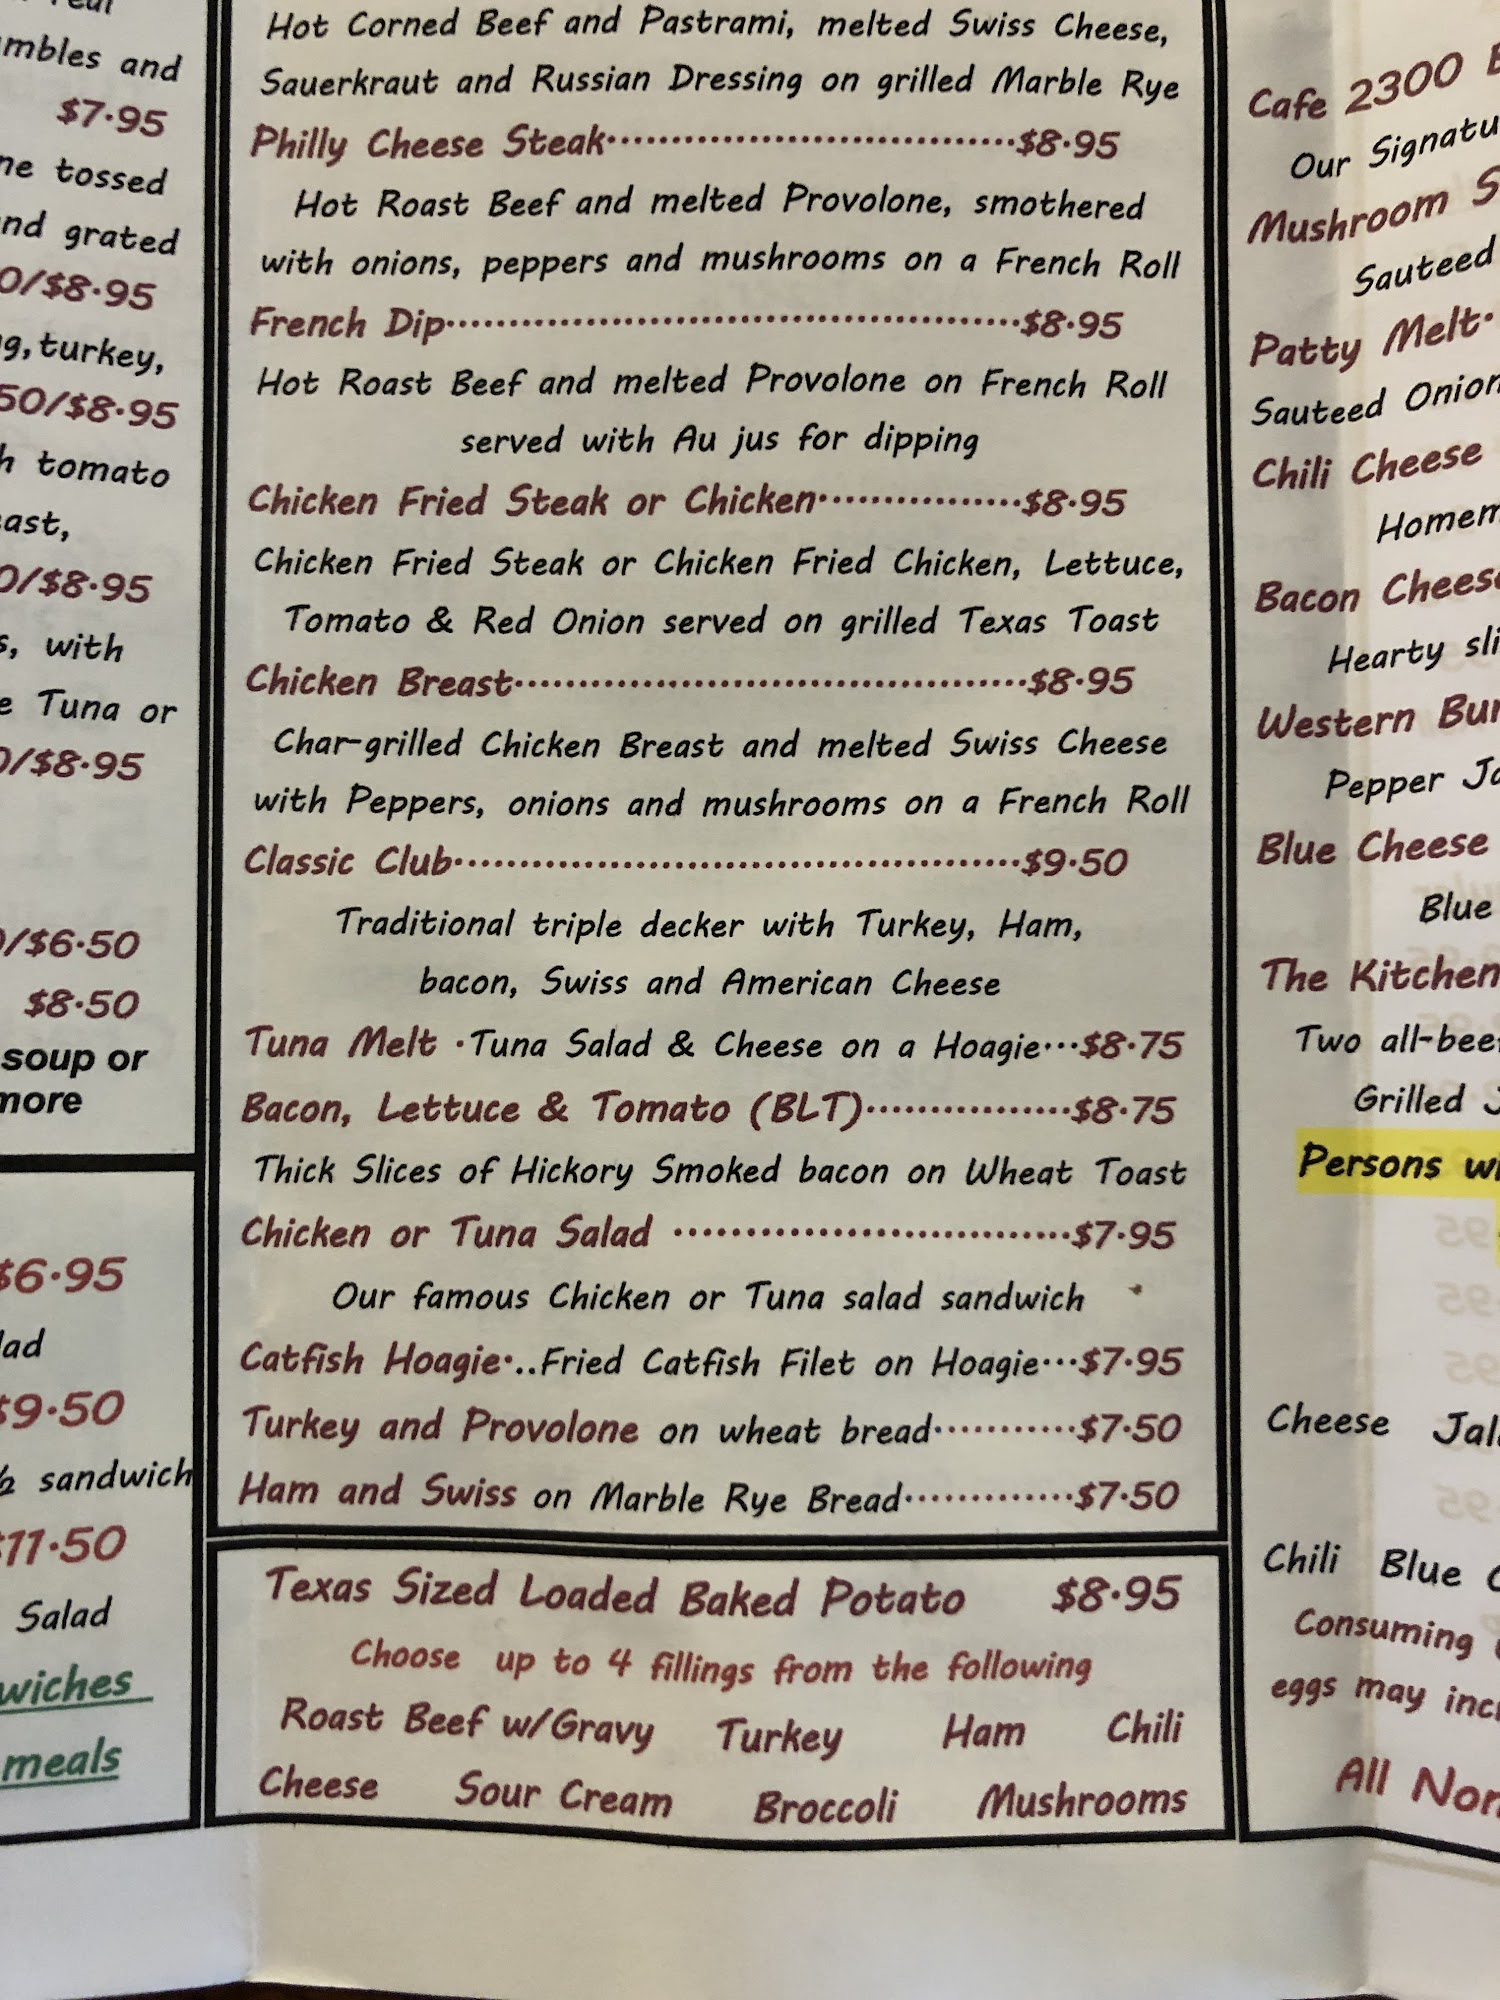 mbles and
$7.95
ne tossed
nd grated
0/$8.95
turkey,
50/$8.95
h tomato
east,
0/$8.95
s, with
e Tuna or
0/$8.95
0/$6.50
$8.50
soup or
more
$6.95
lad
$9.50
½ sandwich
$11.50
Salad
wiches
meals
Hot Corned Beef and Pastrami, melted Swiss Cheese,
Sauerkraut and Russian Dressing on grilled Marble Rye
Philly Cheese Steak................................$8.95
Hot Roast Beef and melted Provolone, smothered
with onions, peppers and mushrooms on a French Roll
French Dip.............................................$8.95
Hot Roast Beef and melted Provolone on French Roll
served with Au jus for dipping
Chicken Fried Steak or Chicken................$8.95
Chicken Fried Steak or Chicken Fried Chicken, Lettuce,
Tomato & Red Onion served on grilled Texas Toast
Chicken Breast........................................$8.95
Char-grilled Chicken Breast and melted Swiss Cheese
with Peppers, onions and mushrooms on a French Roll
Classic Club............................................$9.50
Traditional triple decker with Turkey, Ham,
bacon, Swiss and American Cheese
Tuna Melt .Tuna Salad & Cheese on a Hoagie...$8.75
Bacon, Lettuce & Tomato (BLT)................$8.75
Thick Slices of Hickory Smoked bacon on Wheat Toast
Chicken or Tuna Salad ...............................$7.95
Our famous Chicken or Tuna salad sandwich
Catfish Hoagie...Fried Catfish Filet on Hoagie...$7.95
Turkey and Provolone on wheat bread...........$7.50
Ham and Swiss on Marble Rye Bread.............$7.50
Texas Sized Loaded Baked Potato $8.95
Choose up to 4 fillings from the following
Roast Beef w/Gravy Turkey Ham Chili
Cheese Sour Cream Broccoli Mushrooms
Cafe 2300
Our Signatu
Mushroom S
Sauteed
Patty Melt.
Sauteed Onion
Chili Cheese
Homem
Bacon Cheese
Hearty sli
Western Bur
Pepper Ja
Blue Cheese
Blue
The Kitchen
Two all-beef
Grilled J
Persons wi
Cheese Jal
Chili Blue C
Consuming
eggs may incr
All Non